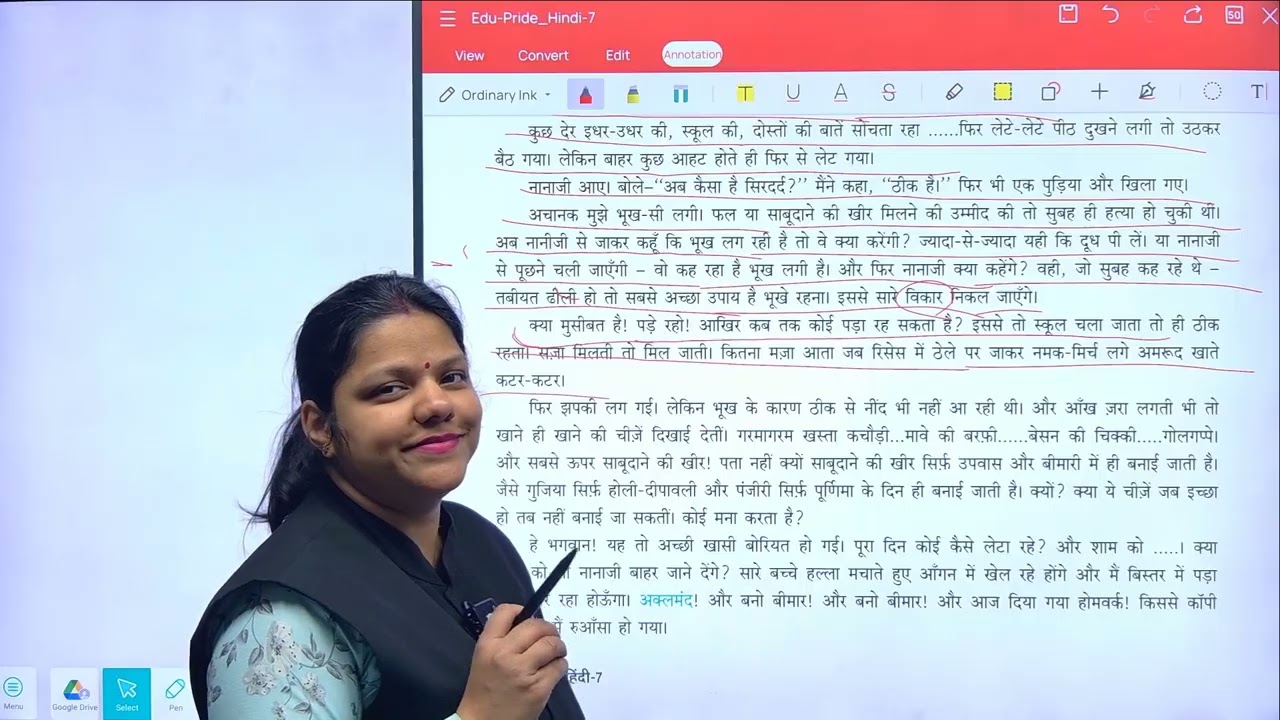 Edu-Pride_Hindi-7
50
View Convert Edit Annotation
Ordinary Ink
कुछ देर इधर-उधर की, स्कूल की, दोस्तों की बातें सोचता रहा ......फिर लेटे-लेटे पीठ दुखने लगी तो उठकर
बैठ गया। लेकिन बाहर कुछ आहट होते ही फिर से लेट गया।
नानाजी आए। बोले–“अब कैसा है सिरदर्द?” मैंने कहा, “ठीक है।” फिर भी एक पुड़िया और खिला गए।
अचानक मुझे भूख-सी लगी। फल या साबूदाने की खीर मिलने की उम्मीद की तो सुबह ही हत्या हो चुकी थी।
अब नानीजी से जाकर कहूँ कि भूख लग रही है तो वे क्या करेंगी? ज्यादा-से-ज्यादा यही कि दूध पी लें। या नानाजी
से पूछने चली जाएँगी – वो कह रहा है भूख लगी है। और फिर नानाजी क्या कहेंगे? वही, जो सुबह कह रहे थे –
तबीयत ढीली हो तो सबसे अच्छा उपाय है भूखे रहना। इससे सारे विकार निकल जाएँगे।
क्या मुसीबत है! पड़े रहो! आखिर कब तक कोई पड़ा रह सकता है? इससे तो स्कूल चला जाता तो ही ठीक
रहता। सज़ा मिलती तो मिल जाती। कितना मज़ा आता जब रिसेस में ठेले पर जाकर नमक-मिर्च लगे अमरूद खाते
कटर-कटर।
फिर झपकी लग गई। लेकिन भूख के कारण ठीक से नींद भी नहीं आ रही थी। और आँख ज़रा लगती भी तो
खाने ही खाने की चीज़ें दिखाई देतीं। गरमागरम खस्ता कचौड़ी...मावे की बरफ़ी......बेसन की चिक्की.....गोलगप्पे।
और सबसे ऊपर साबूदाने की खीर! पता नहीं क्यों साबूदाने की खीर सिर्फ़ उपवास और बीमारी में ही बनाई जाती है।
जैसे गुजिया सिर्फ़ होली-दीपावली और पंजीरी सिर्फ़ पूर्णिमा के दिन ही बनाई जाती है। क्यों? क्या ये चीज़ें जब इच्छा
हो तब नहीं बनाई जा सकतीं। कोई मना करता है?
हे भगवान! यह तो अच्छी खासी बोरियत हो गई। पूरा दिन कोई कैसे लेटा रहे? और शाम को .....। क्या
को नानाजी बाहर जाने देंगे? सारे बच्चे हल्ला मचाते हुए आँगन में खेल रहे होंगे और मैं बिस्तर में पड़ा
रहा होऊँगा। अक्लमंद! और बनो बीमार! और बनो बीमार! और आज दिया गया होमवर्क! किससे कॉपी
मैं रुआँसा हो गया।
हिंदी-7
Menu Google Drive Select Pen